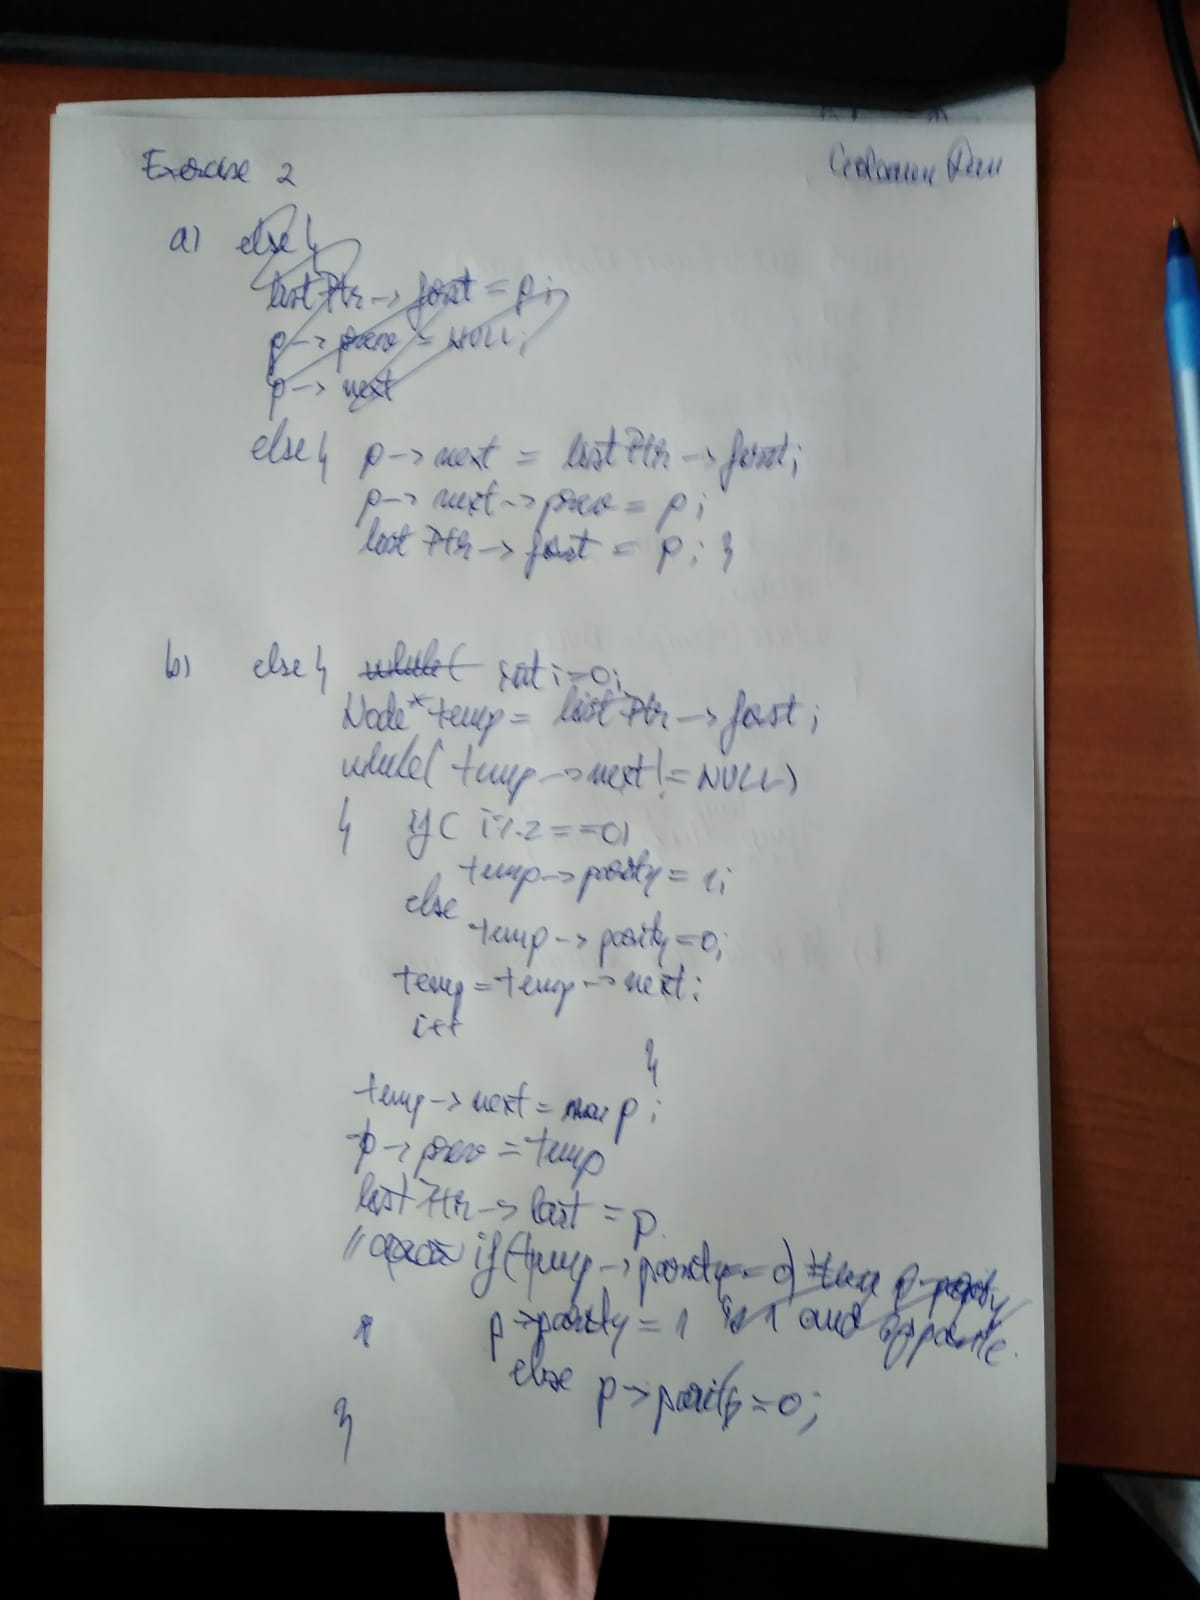 Exercise 2
a) else {
listPtr -> first = p;
p -> prev = NULL;
p -> next
else { p -> next = listPtr -> first;
p -> next -> prev = p;
listPtr -> first = p; }
b) else { while( int i=0;
Node* temp = listPtr -> first;
while( temp -> next != NULL)
{ if( i%2 == 0)
temp -> parity = 1;
else
temp -> parity = 0;
temp = temp -> next;
i++
}
temp -> next = p;
p -> prev = temp
listPtr -> last = p.
// if(temp -> parity == 0) then p -> parity
p -> parity = 1 is 1 and opposite.
else p -> parity = 0;
}